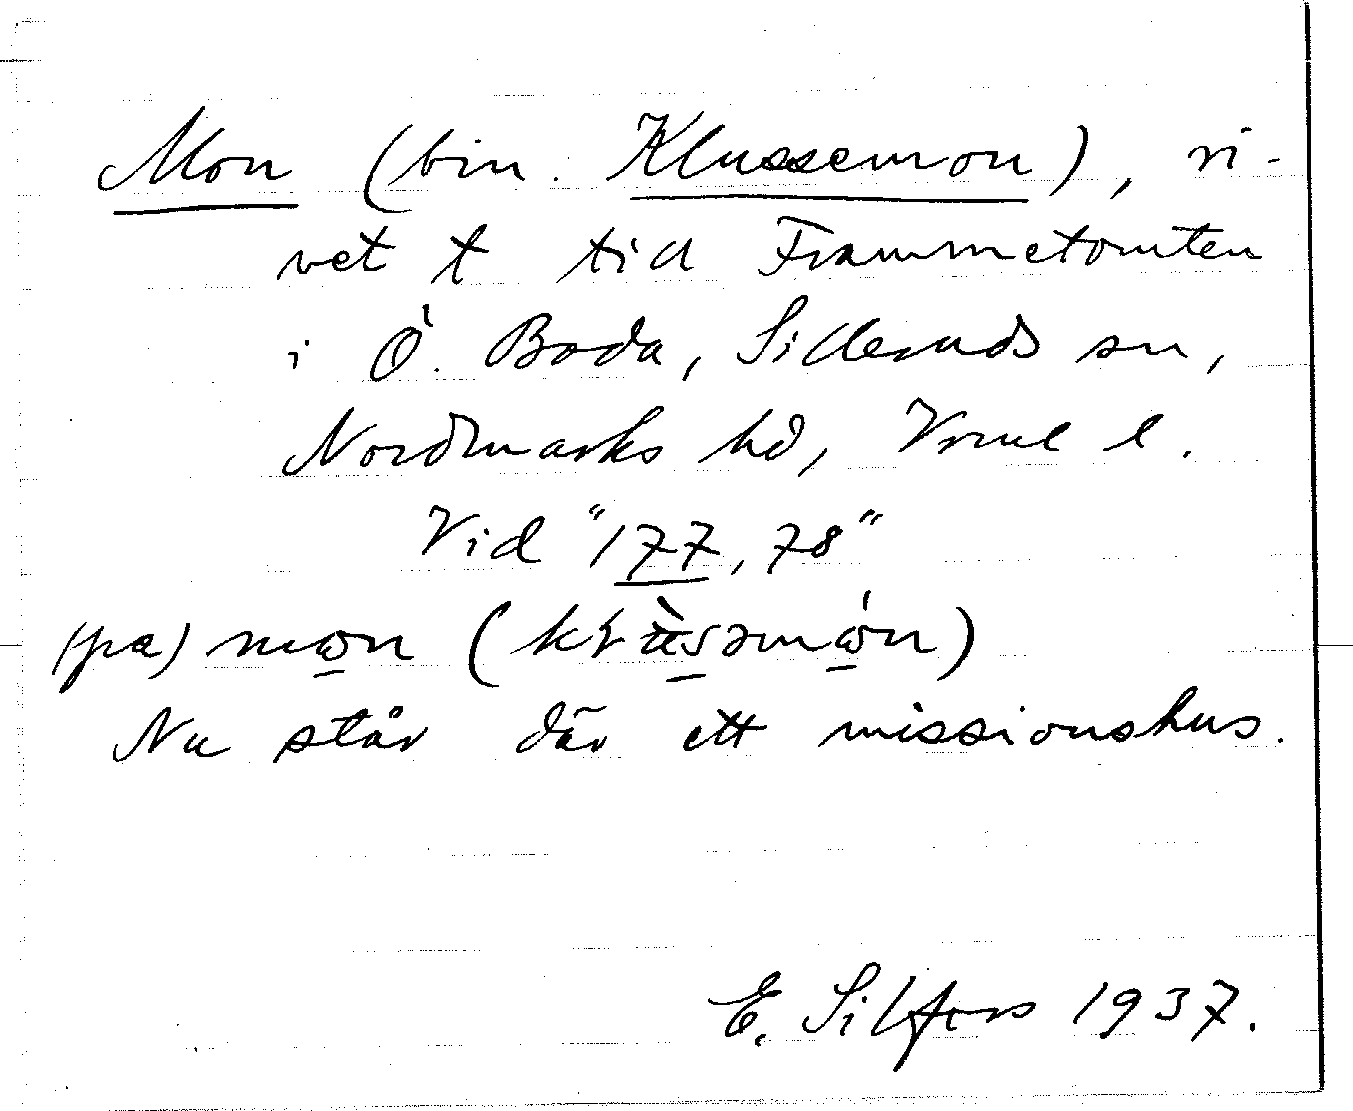 Mon (bin. Klussemon), ri-
vet t tid Frammetomten
i Ö. Boda, Silleruds sn,
Nordmarks hd, Vrml l.
Vid "177, 78"
(pa) mo̲n
Nu står där ett missionshus.
E. Silfors 1937.